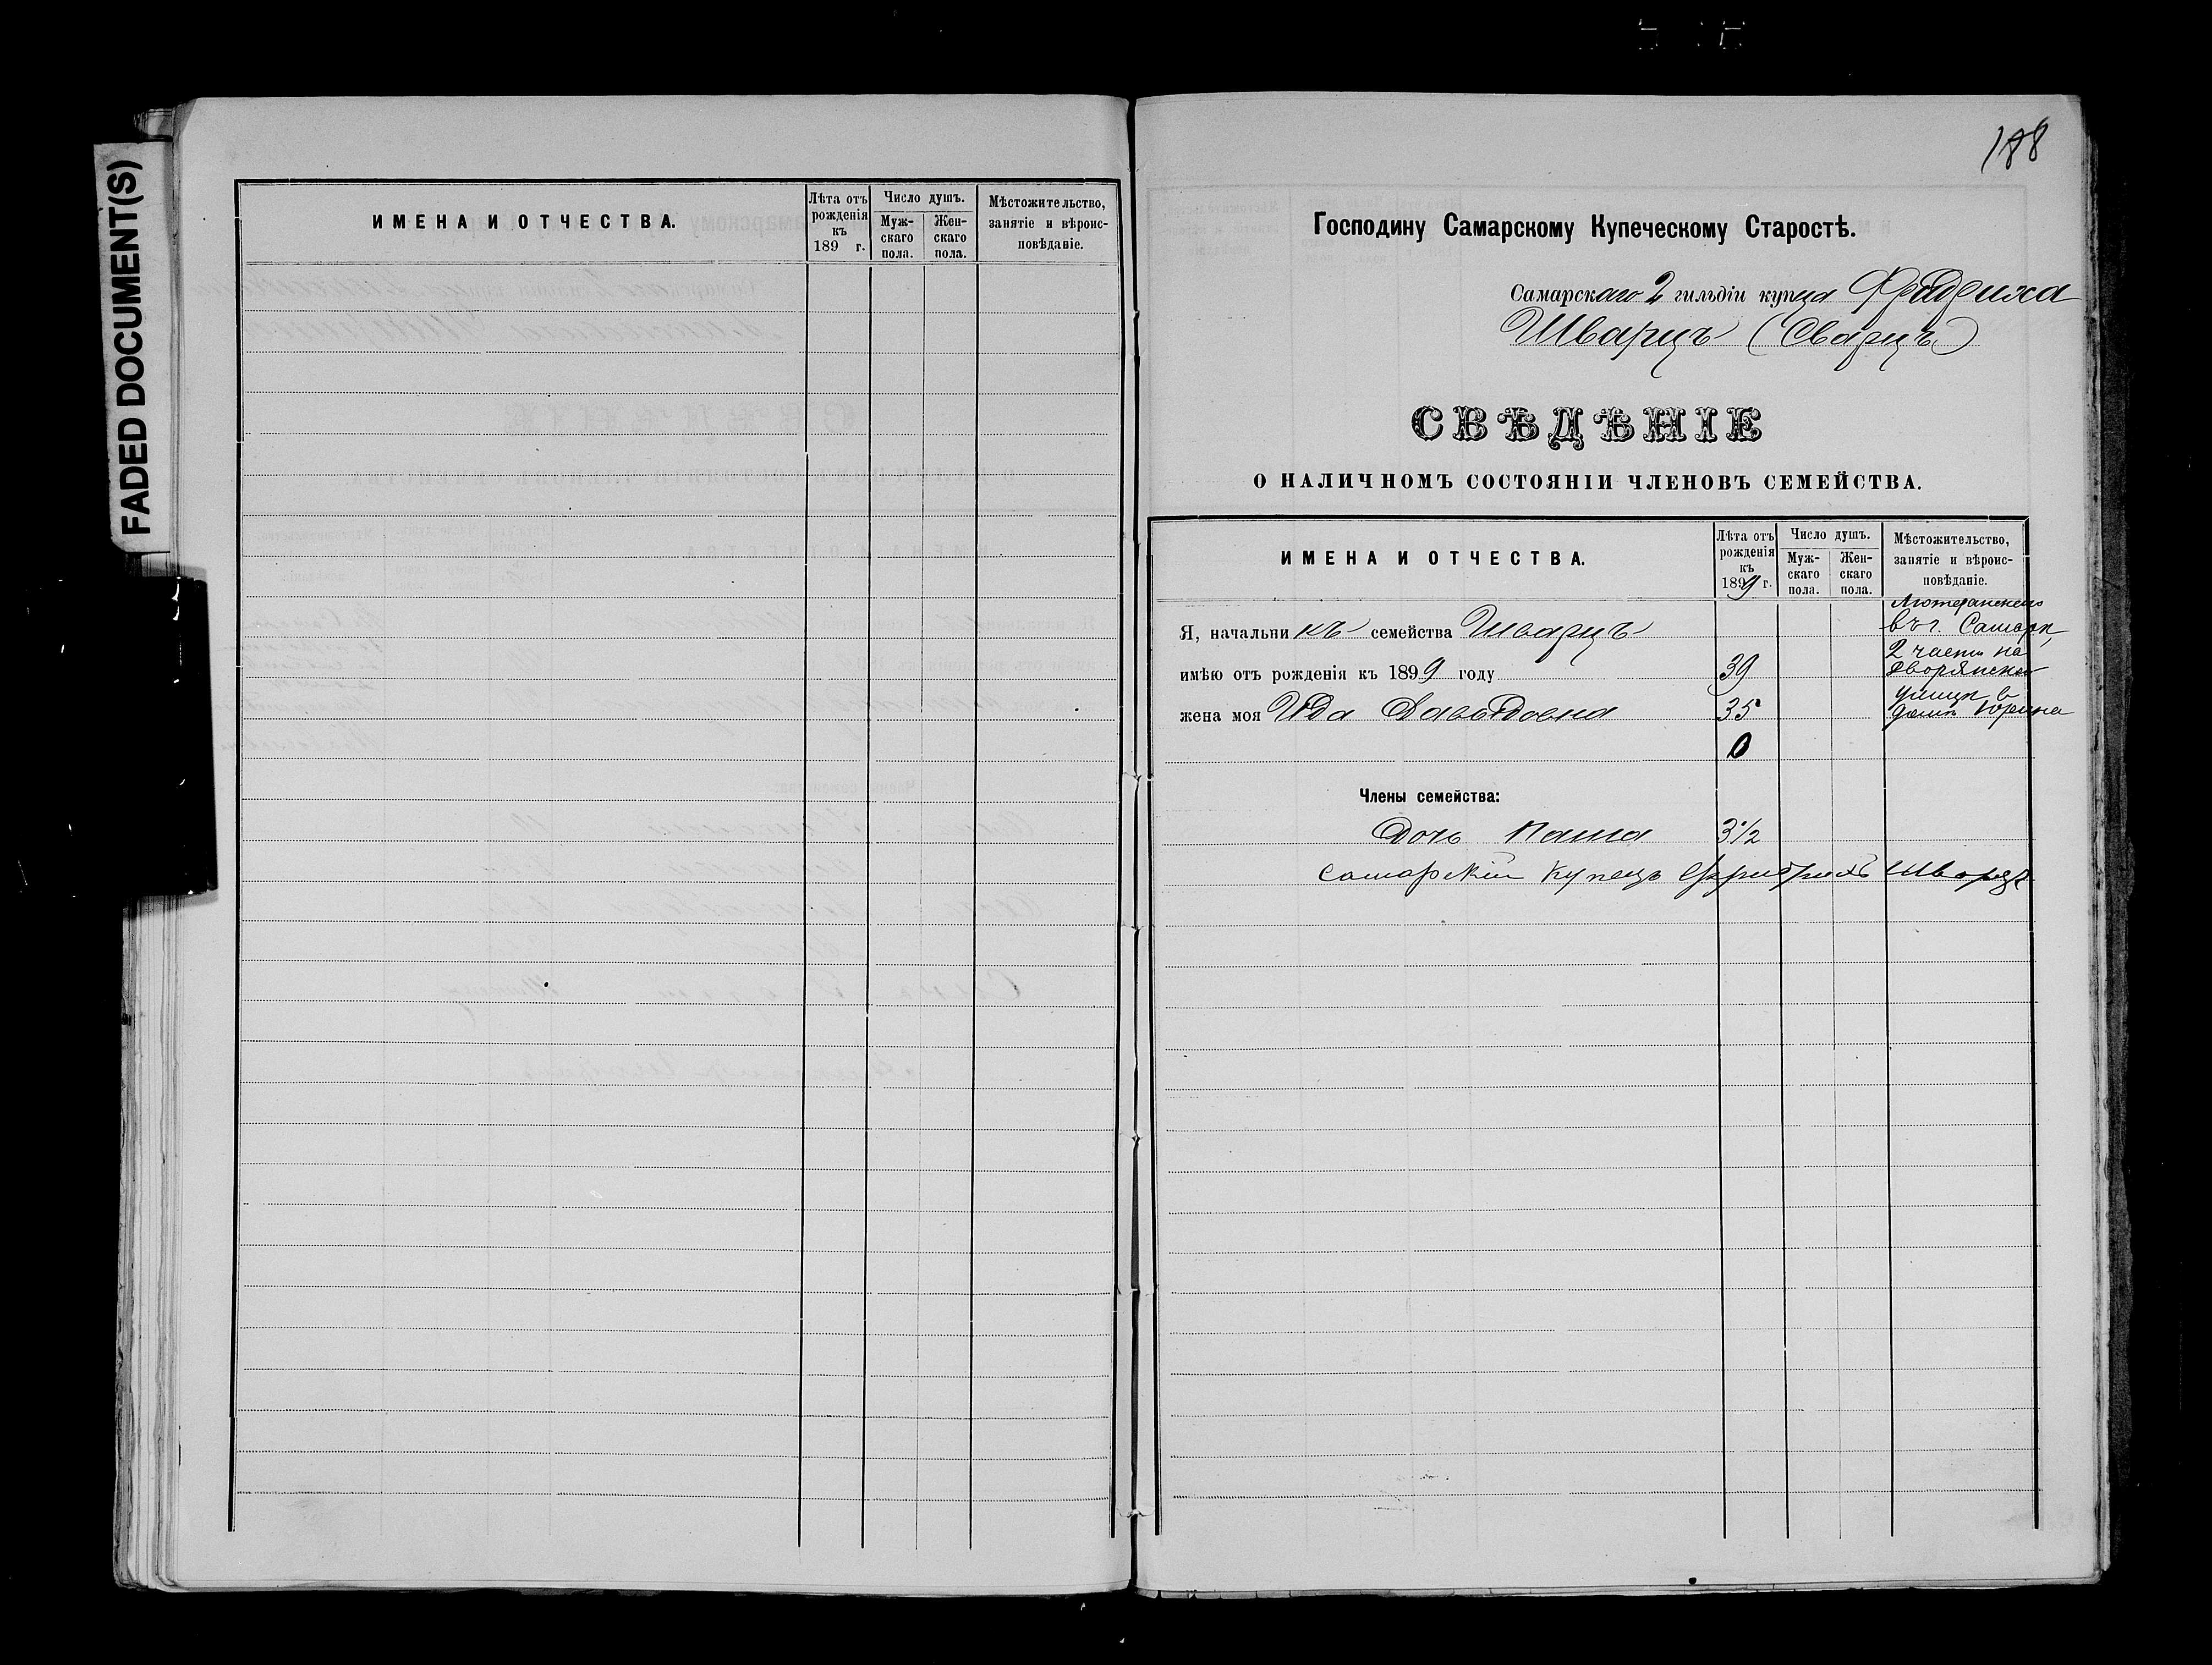 FADED DOCUMENT(S)
ИМЕНА И ОТЧЕСТВА.
Лѣта отъ рожденія къ 189 г.
Число душъ.
Муж- скаго пола.
Жен- скаго пола.
Мѣстожительство, занятіе и вѣроис- повѣданіе.
188
Господину Самарскому Купеческому Старостѣ.
Самарскаго 2 гильдіи купца Фридриха
Шварцъ (Сварцъ)
СВѢДѢНІЕ
О НАЛИЧНОМЪ СОСТОЯНІИ ЧЛЕНОВЪ СЕМЕЙСТВА.
ИМЕНА И ОТЧЕСТВА.
Лѣта отъ рожденія къ 1899 г.
Число душъ.
Муж- скаго пола.
Жен- скаго пола.
Мѣстожительство, занятіе и вѣроис- повѣданіе.
Я, начальникъ семейства Шварцъ
имѣю отъ рожденія къ 1899 году 39
жена моя Ида Давыдовна 35
0
Лютеранскаго
въ г. Самарѣ,
2 части на
Дворянской
улицѣ в
домѣ Юрина
Члены семейства:
Дочь Паша 3 1/2
Самарскій Купецъ Фридрихъ Шварцъ